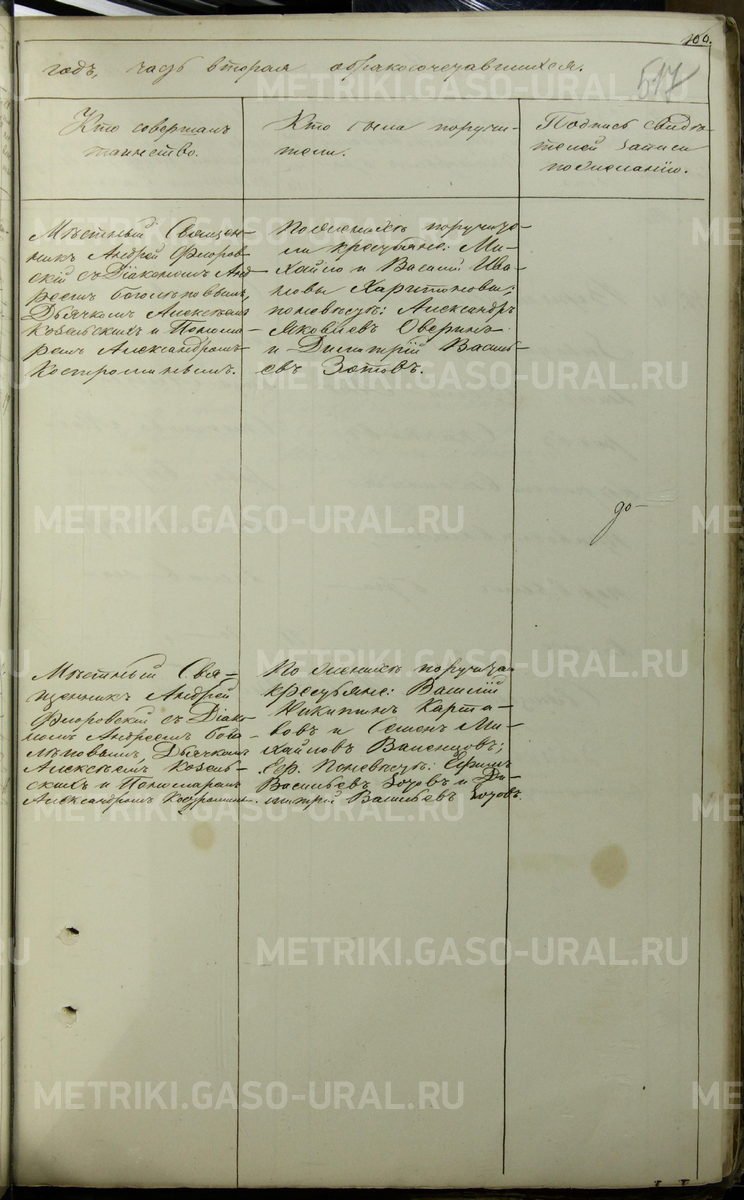 100.
годъ, часть вторая о бракосочетавшихся.
517
Кто совершалъ
таинство.
Кто были поручи-
тели.
Подпись свидѣ-
телей записи
по желанію.
Мѣстный Священ-
никъ Андрей Флоров-
скій съ Діакономъ Анд-
реемъ Боголѣповымъ,
Дьячкомъ Алексѣемъ
Козельскимъ и Понома-
ремъ Александромъ
Костроминымъ.
По женихѣ поручите-
ли крестьяне: Ми-
хайло и Василій Ива-
новы Харитоновы;
по невѣстѣ: Александръ
Яковлевъ Оверинъ
и Димитрій Василь-
евъ Зотовъ.
до
Мѣстный Свя-
щенникъ Андрей
Флоровскій съ Діако-
номъ Андреемъ Бого-
лѣповымъ, Дьячкомъ
Алексѣемъ Козель-
скимъ и Пономаремъ
Александромъ Костроминым.
По женихѣ поручител.
крестьяне: Василій
Никитинъ Карта-
и Семенъ Ми-
хайловъ
По невѣстѣ: Ефимъ
Васильевъ Зотовъ и Ди-
митрій Васильевъ Зотовъ.
METRIKI.GASO-URAL.RU